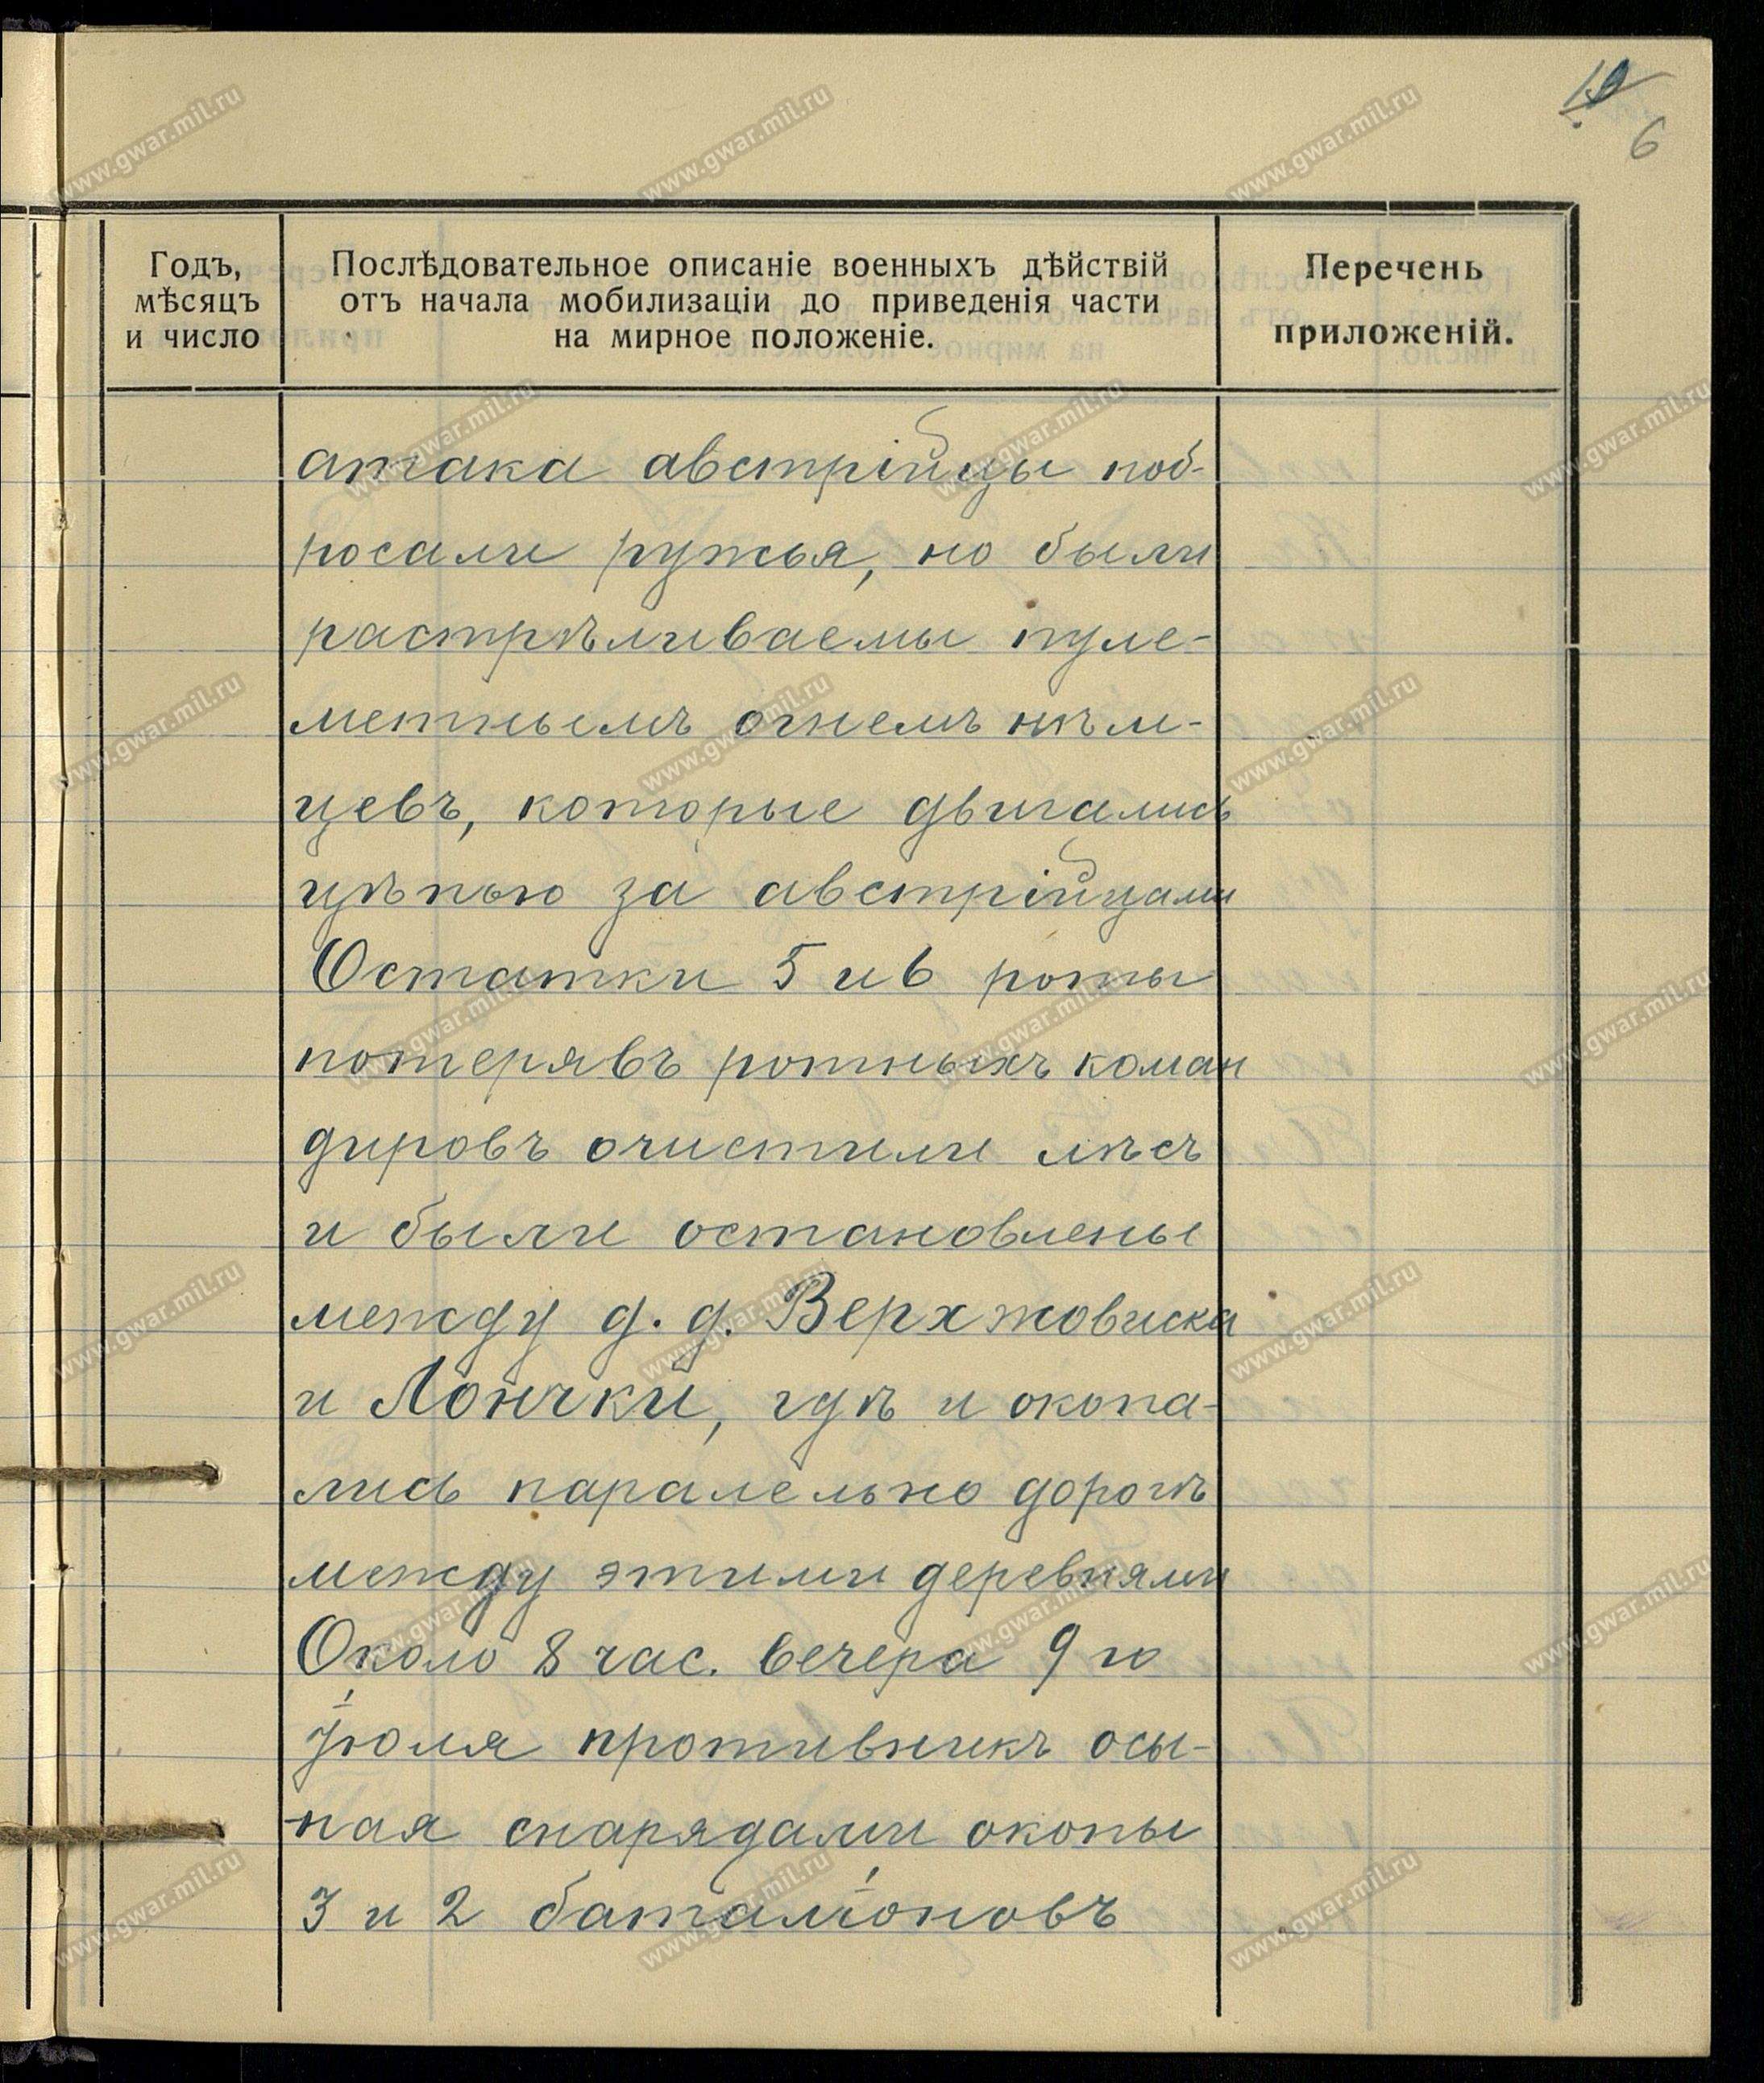 19
6
Годъ,
мѣсяцъ
и число
Послѣдовательное описаніе военныхъ дѣйствій
отъ начала мобилизаціи до приведенія части
на мирное положеніе.
Перечень
приложеній.
атака австрійцы поб-
росали ружья, но были
растрѣливаемы пуле-
метнымъ огнемъ нѣм-
цевъ, которые двигались
цѣпью за австрійцами
Остатки 5 и 6 роты
потерявъ ротныхъ коман
дировъ очистили лѣсъ
и были остановлены
между д. д. Верхжовиска
и Лончки, гдѣ и окопа-
лись паралельно дорогѣ
между этими деревнями
Около 8 час. вечера 9 го
Іюля противникъ осы-
пая снарядами окопы
3 и 2 баталіоновъ
www.gwar.mil.ru